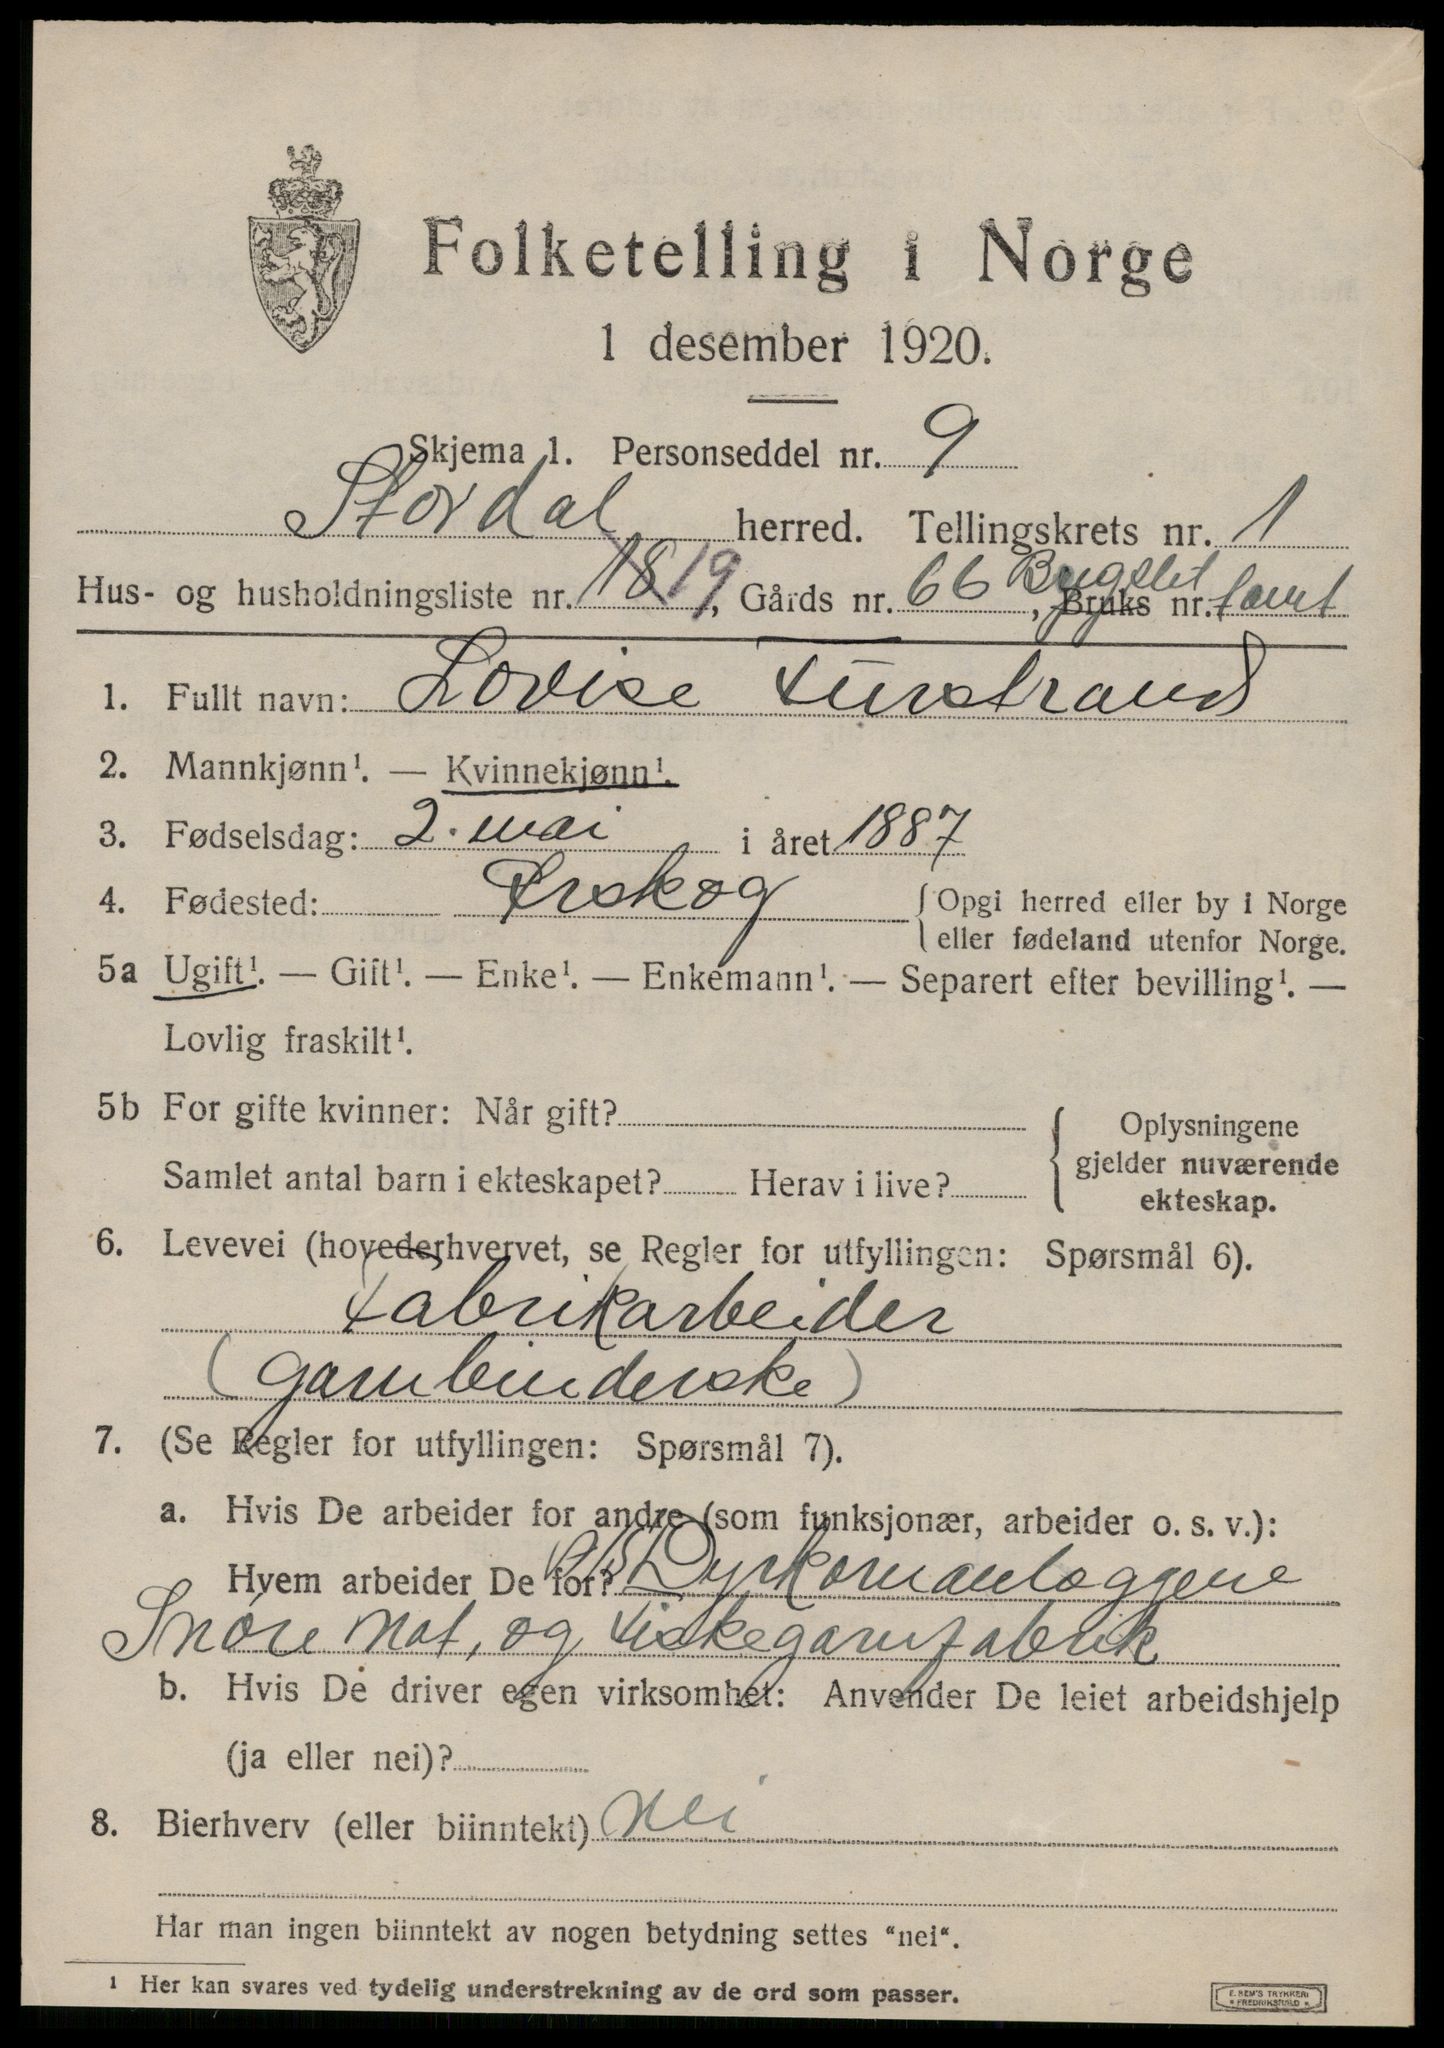 Folketelling i Norge
1 desember 1920.
Skjema 1. Personseddel nr. 9
Stordal herred. Tellingskrets nr. 1
Hus- og husholdningsliste nr. 18 19, Gårds nr. 66, Bruks nr. Bygslet tomt
1. Fullt navn: Lovise Furstrand
2. Mannkjønn¹. — Kvinnekjønn¹.
3. Fødselsdag: 2. mai i året 1887
4. Fødested: Ørskog { Opgi herred eller by i Norge
eller fødeland utenfor Norge.
5a Ugift¹. — Gift¹. — Enke¹. — Enkemann¹. — Separert efter bevilling¹. —
Lovlig fraskilt¹.
5b For gifte kvinner: Når gift? { Oplysningene
gjelder nuværende
ekteskap.
Samlet antal barn i ekteskapet? Herav i live?
6. Levevei (hovederhvervet, se Regler for utfyllingen: Spørsmål 6).
Fabrikarbeider
(garnbinderske)
7. (Se Regler for utfyllingen: Spørsmål 7).
a. Hvis De arbeider for andre (som funksjonær, arbeider o. s. v.):
Hvem arbeider De for? A/S Dyrkornanlæggene
Snøre Not, og Fiskegarnfabrik
b. Hvis De driver egen virksomhet: Anvender De leiet arbeidshjelp
(ja eller nei)?
8. Bierhverv (eller biinntekt) Nei
Har man ingen biinntekt av nogen betydning settes "nei".
¹ Her kan svares ved tydelig understrekning av de ord som passer.
E. SEM'S TRYKKERI
FREDRIKSHALD